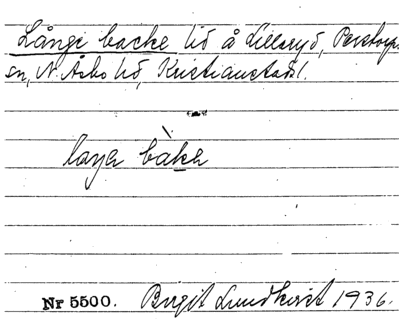 Långe backe lid å Lillaryd, Perstorps
sn, N. Åsbo hd, Kristianstads l.
laŋa bàka
Nr 5500. Birgit Lundkvist 1936.